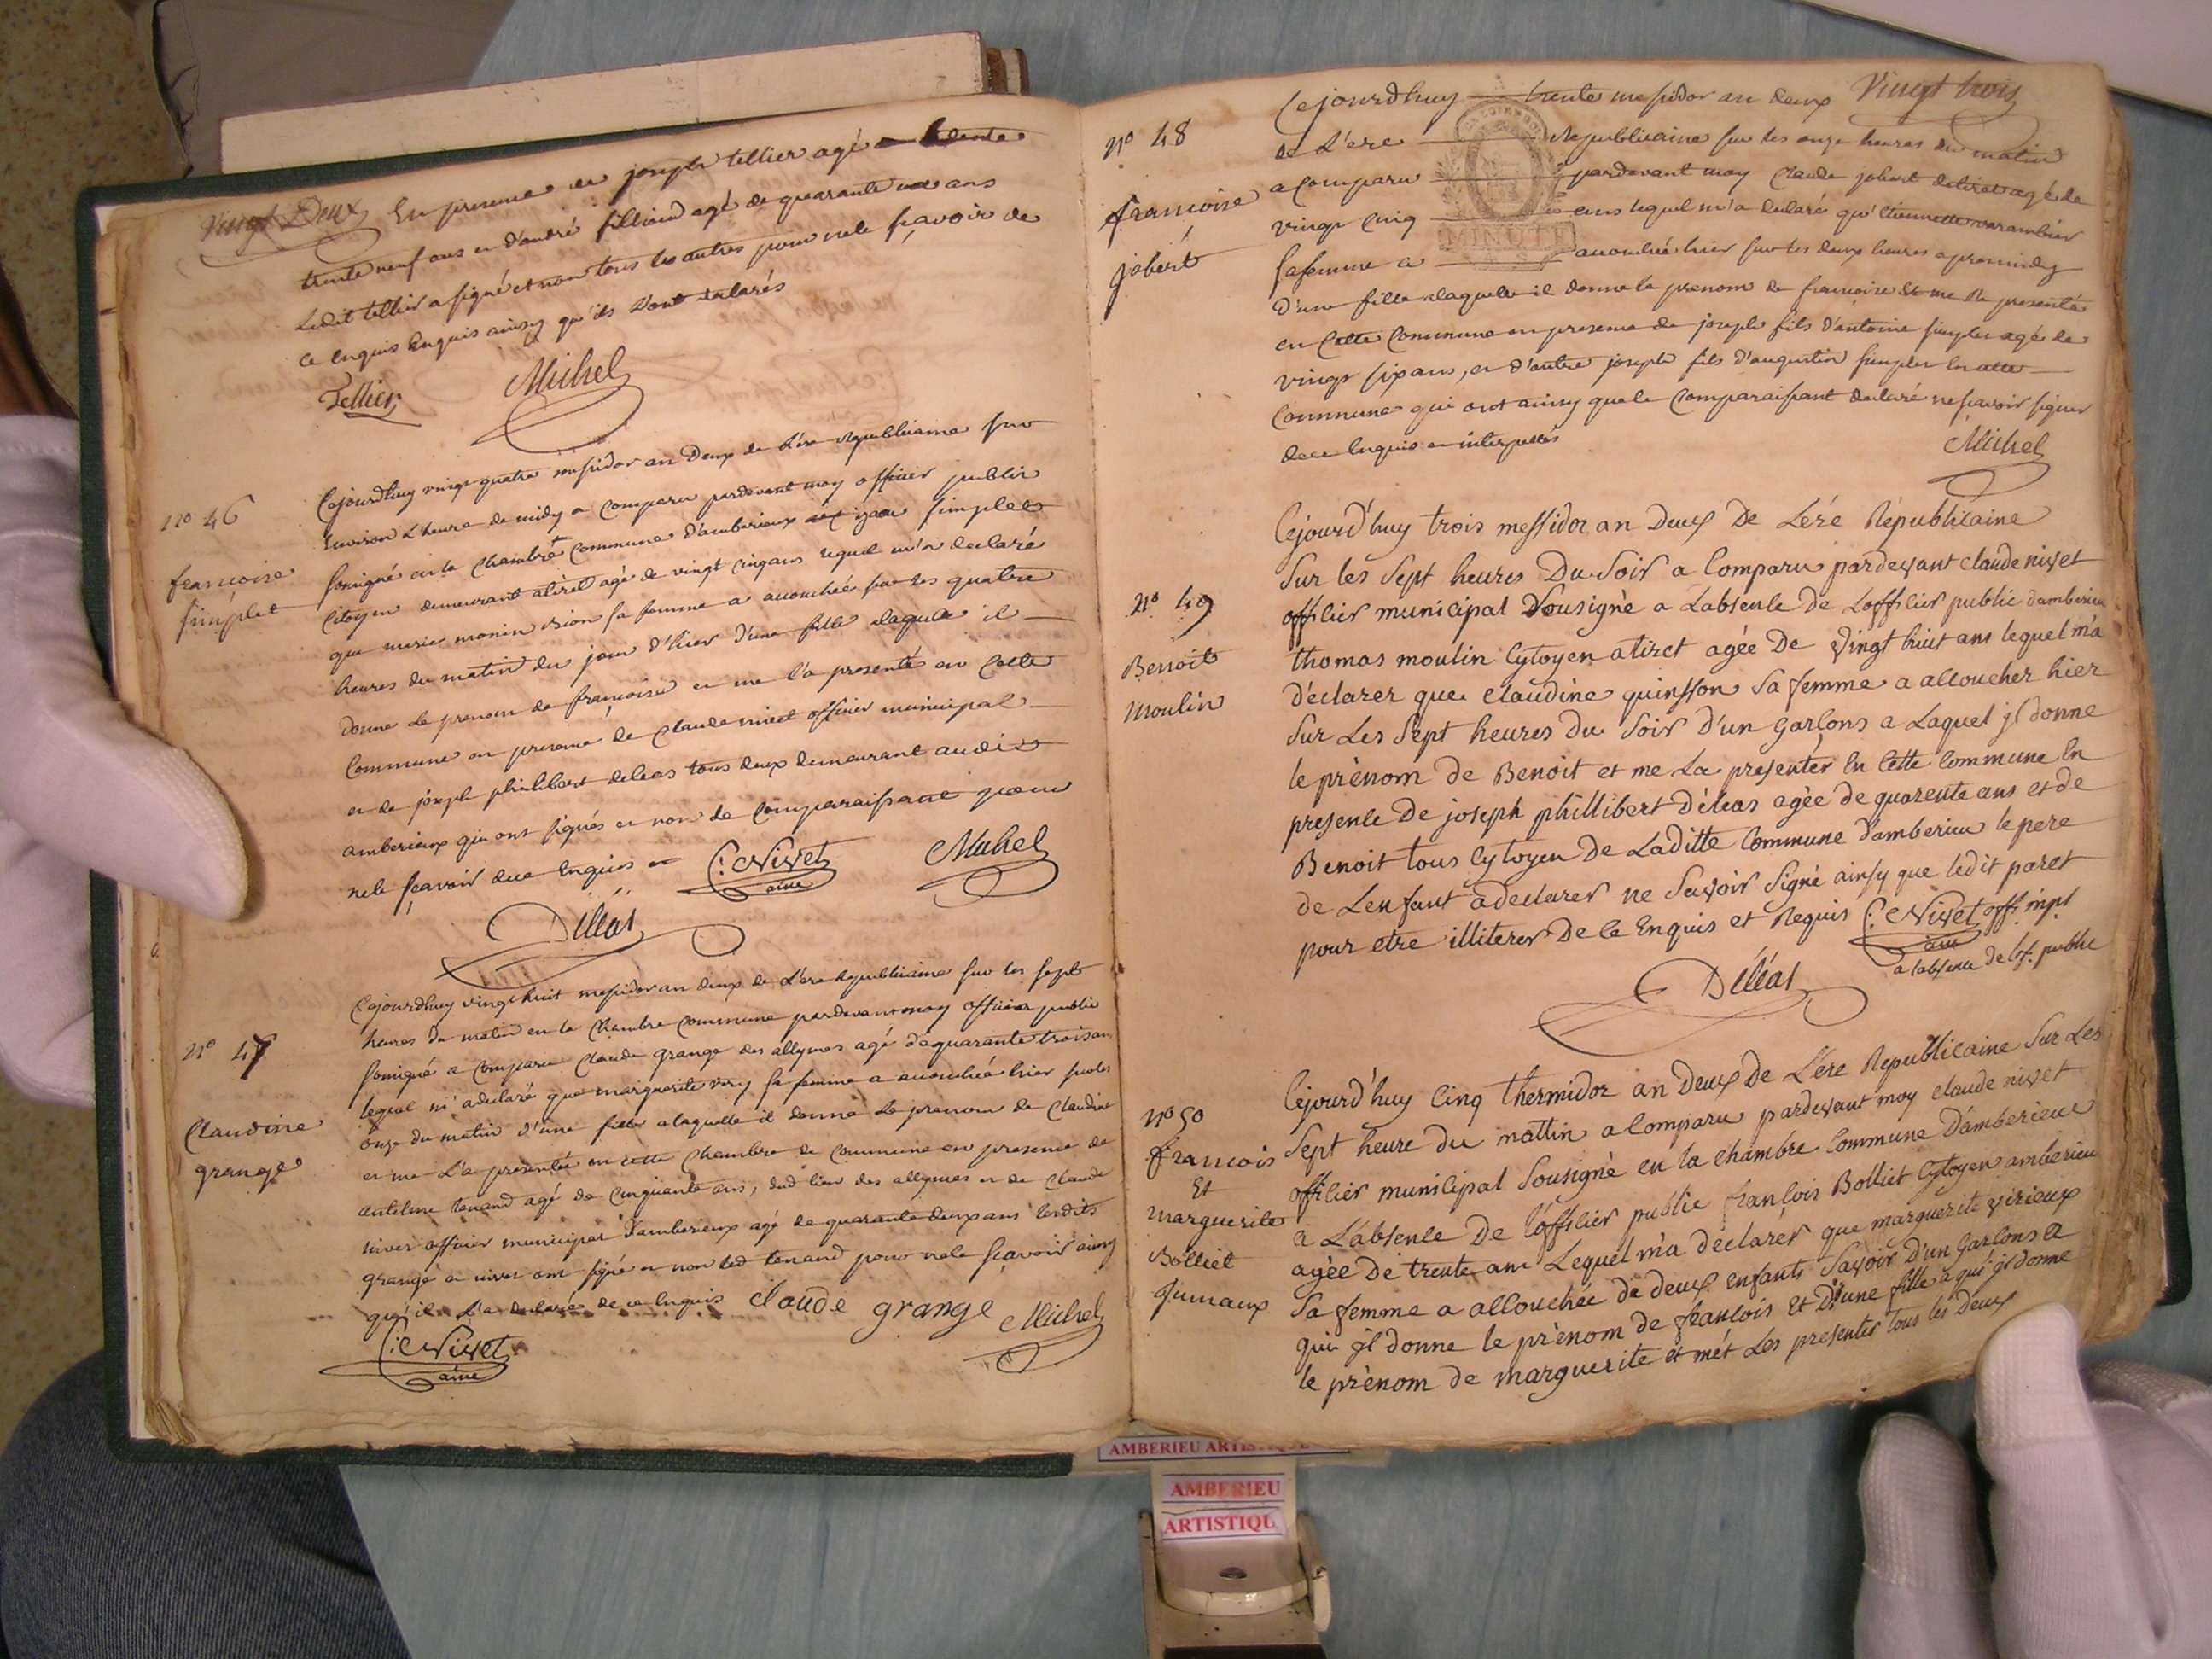 Vingt Deux
En presence de joseph tellier agé
trente neuf ans et d'andré filliand agé de quarante ans
Ledit tellier a signé et non tous les autres pour ne le sçavoir de
ce enquis Enquis ainsy qu'ils L'ont declarés
Tellier Michel
n° 46
francoise
simplet
Cejourdhuy vingt quatre messidor an Deux de L'ere republicaine sur
Environ L'heure de midy a comparu pardevant moy officier public
sousigné en la chambre commune d'amberieux simplet
Citoyen demeurant a tiret agé de vingt cinq ans lequel m'a declaré
que marie monin sa femme a accouchée sur les quatre
heures du matin du jour d'hier d'une fille a laquelle il
donne le prenom de francoise et me l'a presenté en cette
Commune en presence de Claude nivet officier municipal
et de joseph philibert deleas tous deux demeurant audit
amberieux qui ont signés et non le comparaissant pour
ne le sçavoir de ce Enquis C: Nivet ainé Michel
Déléas
n° 47
Claudine
grange
Cejourdhuy vingt huit messidor an deux de L'ere republicaine sur les sept
heures du matin en la Chambre commune pardevant moy officier public
sousigné a comparu Claude grange des allymes agé de quarante trois ans
lequel m'a declaré que marguerite sa femme a accouchée hier sur les
onze du matin d'une fille a laquelle il donne le prenom de Claudine
et me L'a presentée en cette Chambre de commune en presence de
antelme tenand agé de cinquante ans, dud lieu des allymes et de Claude
nivet officier municipal d'amberieux agé de quarante deux ans lesdits
grange et nivet ont signé et non led tenand pour ne le sçavoir ainsy
qu'il L'a declaré de ce enquis Claude grange Michel
C: Nivet
ainé
Vingt trois
n° 48
francoise
jobert
Cejourdhuy trente messidor an deux
de L'ere Republicaine sur les onze heures du matin
a comparu pardevant moy Claude jobert de tiret agé de
vingt cinq ans lequel m'a declaré qu'Etiennette varambier
sa femme a accouchée hier sur les deux heures apres midy
d'une fille a laquelle il donne le prenom de francoise et me la presenté
en Cette Commune en presence de joseph fils d'antoine simplet agé de
vingt six ans, et d'autre joseph fils d'augustin simplet
Commune qui ont ainsy que le Comparaissant declaré ne sçavoir signer
de ce Enquis et interpellés
Michel
MINUTE
n° 49
Benoit
moulin
Cejourd'huy trois messidor an Deux De Lére Républicaine
Sur les Sept heures Du Soir a Comparu pardevant claude nivet
officier municipal Sousigné a Labsence de Lofficier public damberieu
thomas moulin Cytoyen a tiret agée De vingt huit ans lequel m'a
déclarer que claudine quinsson sa femme a accoucher hier
Sur Les Sept heures Du Soir d'un garcons a Laquel jl donne
le prènom de Benoit et me La presenter En Cette Commune En
presence De joseph phillibert Déleas agée de quarente ans et de
Benoit tous Cytoyen De Laditte Commune d'amberieu le pere
de Lenfant a declarer ne Savoir Signé ainsy que ledit paret
pour etre illiterer De Ce Enquis et Requis C: Nivet off. mpl
ainé
a labsence de lof. public
Déléas
n° 50
francois
Et
marguerite
Bolliet
Jumaux
Cejourd'huy Cinq thermidor an Deux De L'ére Republicaine Sur Les
Sept heure du mattin a Comparu pardevant moy claude nivet
officier municipal Sousigné en la chambre Commune D'amberieux
a Labsence De L'officier public françois Bolliet Cytoyen amberieu
agée De trente ans Lequel m'a déclarer que marguerite virieux
Sa femme a accouchée de deux enfants Savoir D'un Garcons a
qui jl donne le prènom de francois Et D'une fille a qui jl donne
le prènom de marguerite et mét Les presenter tous les Deux
AMBERIEU ARTISTIQUE
AMBERIEU
ARTISTIQU